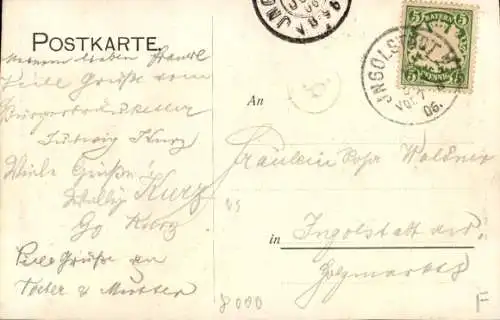 POSTKARTE.
Meinem lieben
Viele Grüße vom
Bürgerbräukeller
Ludwig Kurz
Viele Grüße!
Willy Kurz
Kurz
Viele Grüße an
Vater & Mutter
An
Fräulein Rosa
in Ingolstadt a/D.
Holzmarkt
BAYERN
5 5
PFENNIG
INGOLS
Vor. 7
06.
8000
F